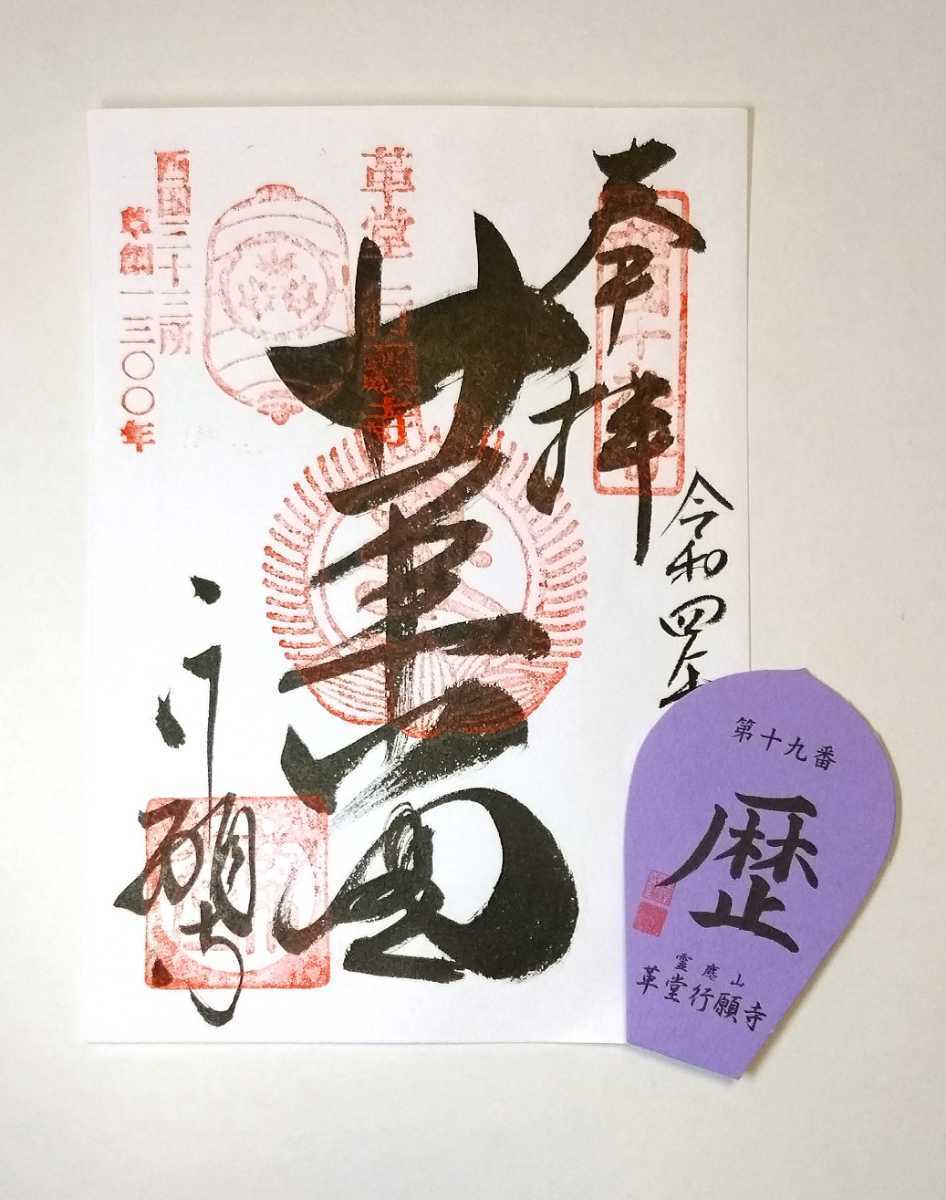 奉拝
令和四年
革堂
革堂行願寺
西国三十三所
草創一三〇〇年
行願寺
第十九番
歴
霊應山
革堂行願寺